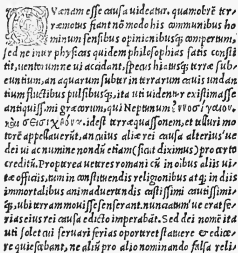 Quænam esse causa uideatur, quamobrē ter-
ræmotus fiant nō modo his cōmunibus ho
minum sensibus opinionibusq; compertum,
sed ne inter physicas quidem philosophias satis consti
tit, uentorum ne ui accidat, specus hiatusq; terræ sube-
untium, an aquarum subter in terrarum cauis undan
tium fluctibus pulsibusq;, ita uti uidentur existimasse
antiquiss.mi græcorum, qui Neptunum
idest terræquassonem, et tellurimo
torē appellauerūt, an cuius aliæ rei causa alterius'ue
dei ui ac numine nondū etiam (sicut diximus) pro certo
creditū. Propterea ueteres romani cū in oībus aliis ui-
tæ officijs, tum in constituendis religionibus atq; in diis
immortalibus animaduertendis castissimi cautissimi-
q; ubi terram mouisse senserant, nunciatum'ue erat fe-
rias eius rei causa edicto imperabāt. Sed dei nomē ita
uti solet cui seruari ferias oporteret statuere & edice-
re quiescebant, ne aliū pro alio nominando falsa reli-